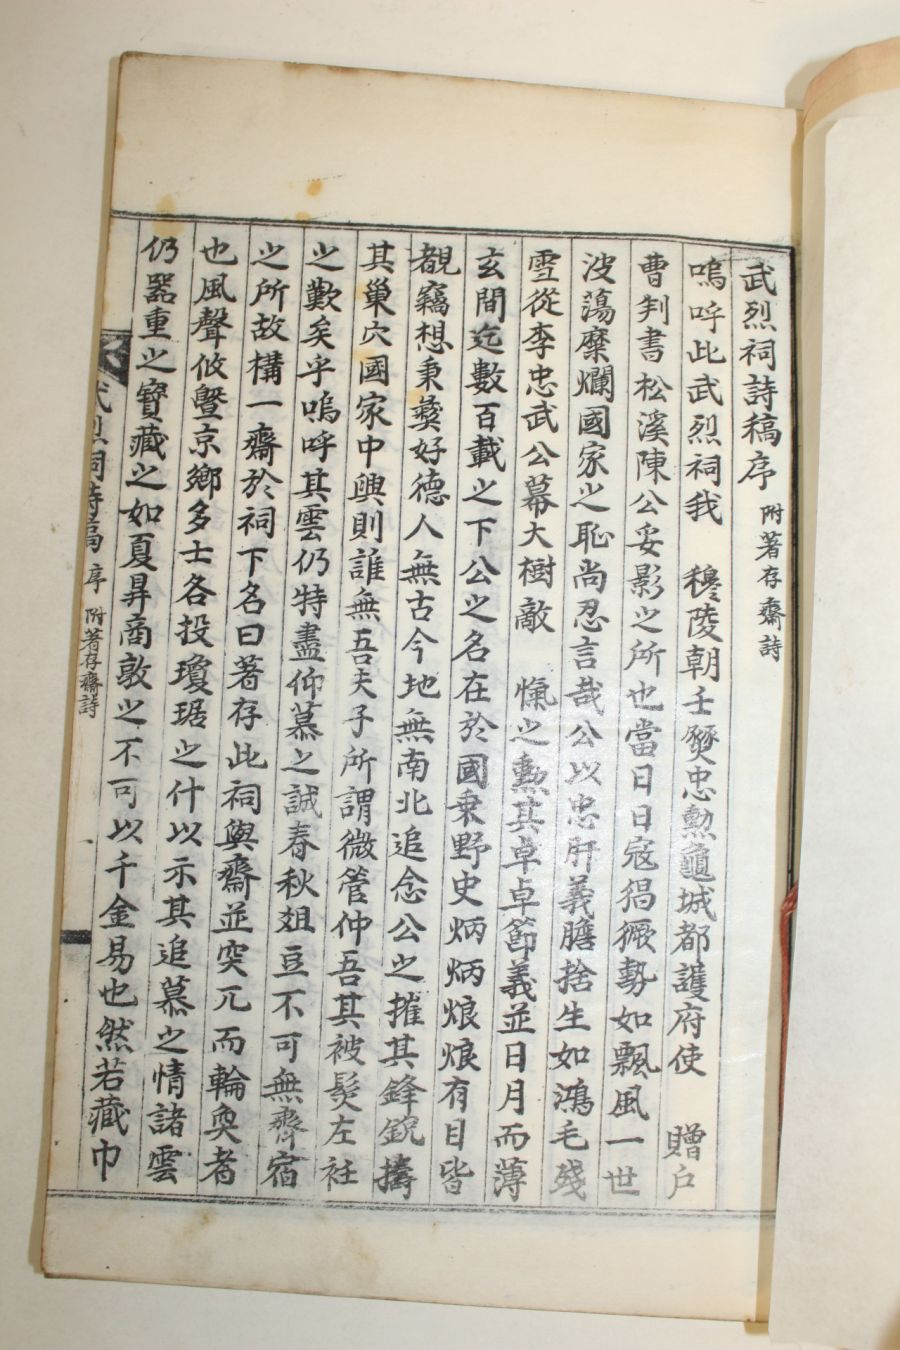 武烈祠詩稿序 附著存齋詩
嗚呼此武烈祠我 穆陵朝壬燹忠勲龜城都護府使 贈户
曹判書松溪陳公妥影之所也當日日寇猖獗勢如飄風一世
波蕩糜爛國家之恥尚忍言哉公以忠肝義膽捨生如鴻毛殘
雪從李忠武公幕大樹敵 愾之勲其卓卓節義並日月而薄
玄間迄數百載之下公之名在於國乗野史炳炳烺烺有目皆
覩竊想秉彜好德人無古今地無南北追念公之摧其鋒銳擣
其巢穴國家中興則誰無吾夫子所謂微管仲吾其被髮左衽
之歎矣乎嗚呼其雲仍特盡仰慕之誠春秋俎豆不可無齊宿
之所故構一齋於祠下名曰著存此祠與齋並突兀而輪奐者
也風聲攸曁京鄉多士各投瓊琚之什以示其追慕之情諸雲
仍器重之寶藏之如夏鼎商敦之不可以千金易也然若藏巾
武烈祠詩稿 序 附著存齋詩 一